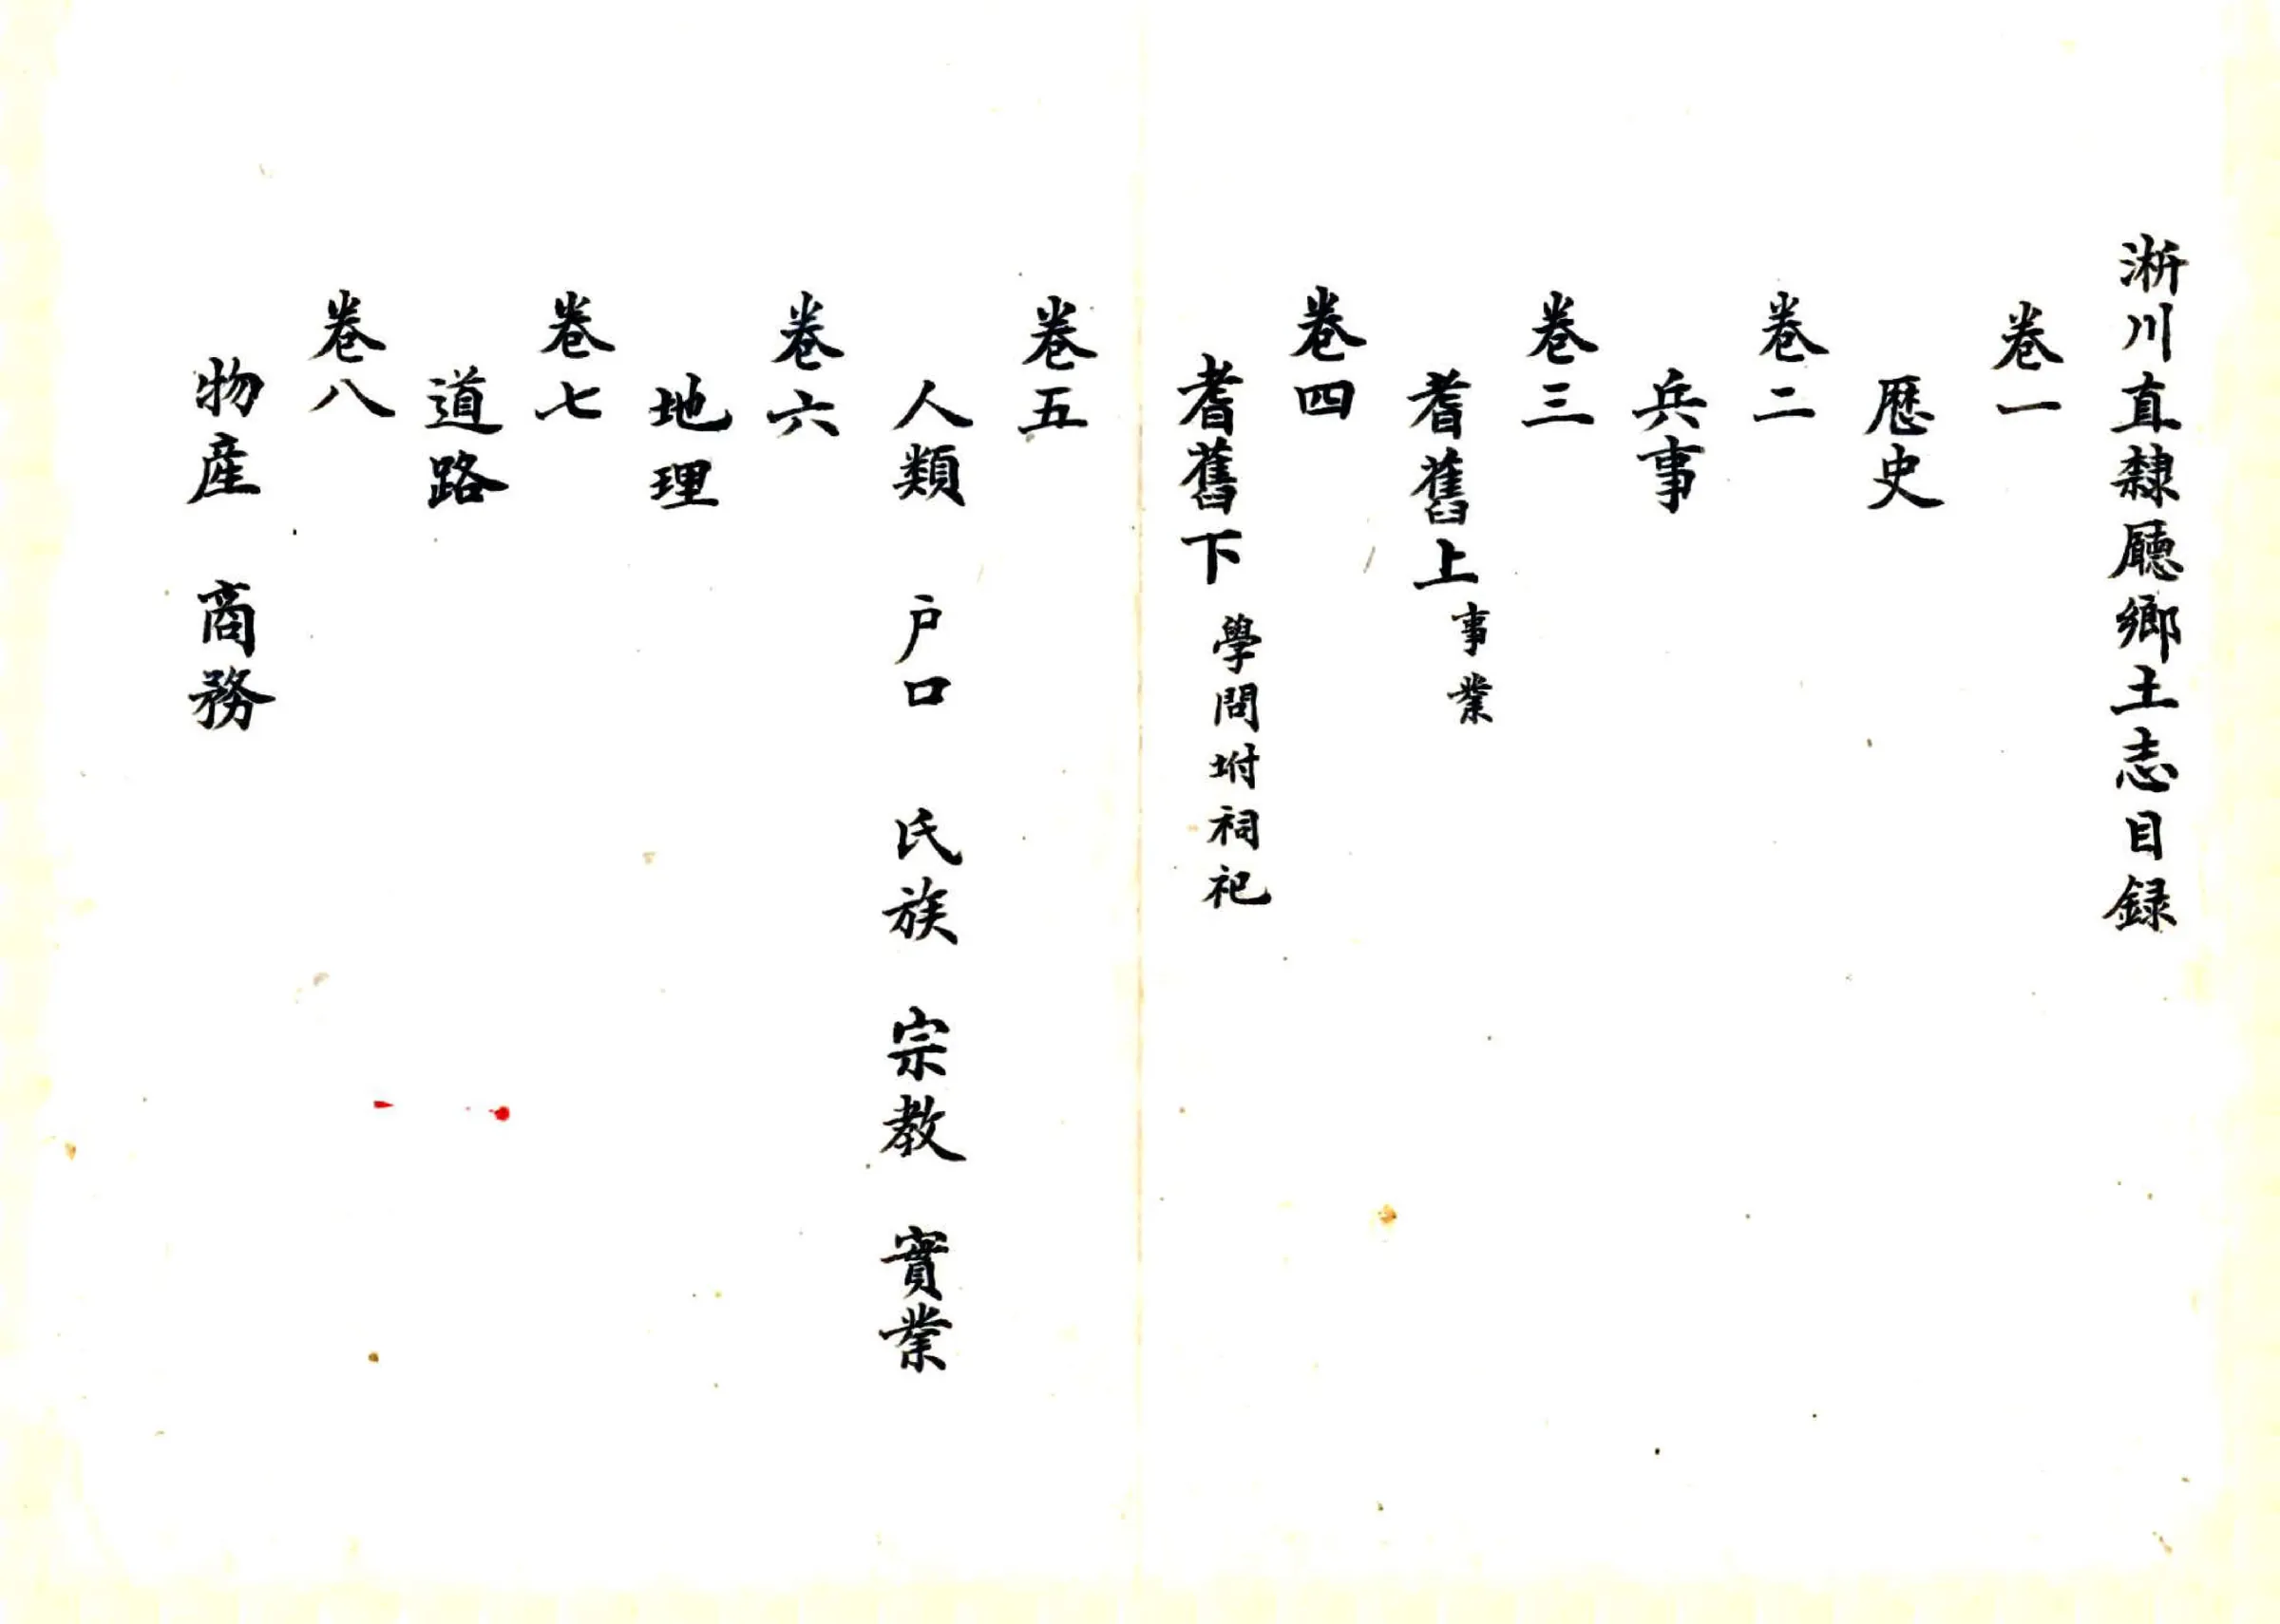 淅川直隸廳鄉土志目録
卷一
歷史
卷二
兵事
卷三
耆舊上 事業
卷四
耆舊下 學問坿祠祀
卷五
人類 户口 氏族 宗教 實業
卷六
地理
卷七
道路
卷八
物産 商務